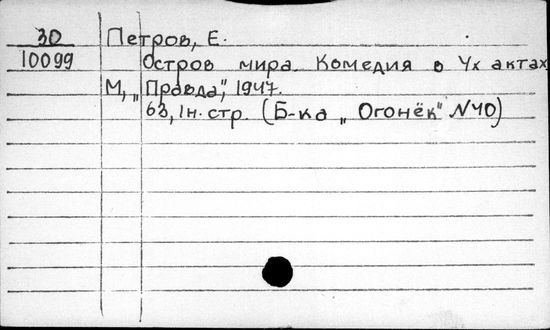 30 Петров, Е.
10099 Остров мира. Комедия в 4х актах
М, „Правда", 1947.
63, 1н. стр. (Б-ка „Огонёк" N40)